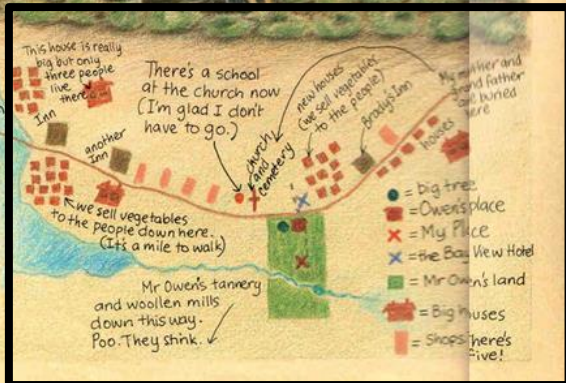 This house is really
big but only
three people
live
there.
Inn
another
Inn
There's a school
at the church now
(I'm glad I don't
have to go.)
church
and
cemetery
new houses
(we sell vegetables
to the people)
Brady's Inn
houses
My mother and
grand father
are buried
here
we sell vegetables
to the people down here.
(It's a mile to walk)
Mr Owen's tannery
and woollen mills
down this way.
Poo. They stink.
= big tree
= Owen's place
= My Place
= the Bay View Hotel
= Mr Owen's land
= Big houses
= Shops There's
Five!